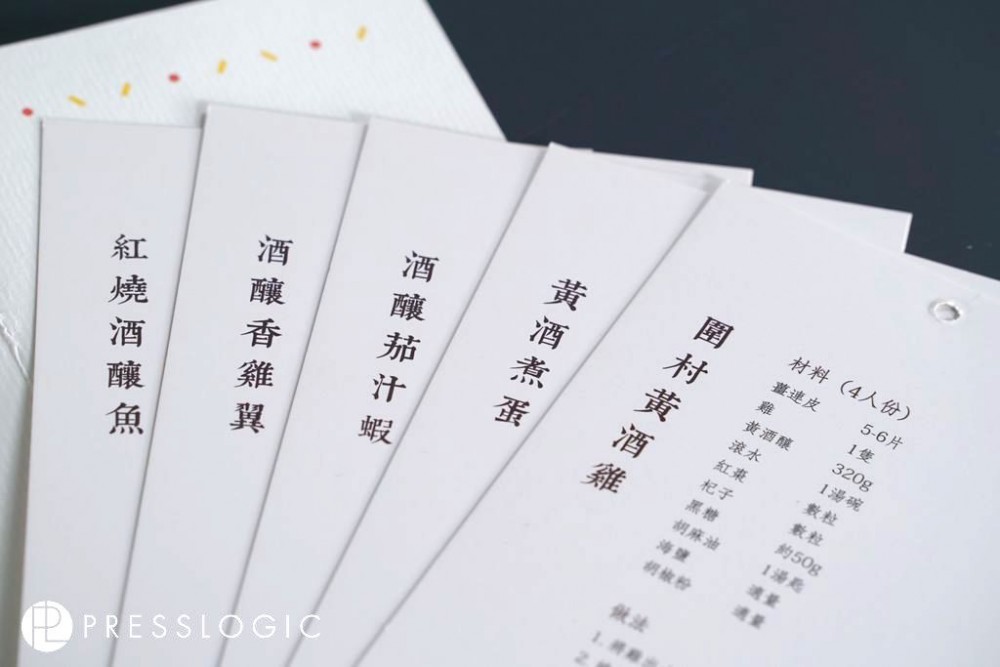 紅燒酒釀魚
酒釀香雞翼
酒釀茄汁蝦
黃酒煮蛋
圍村黃酒雞
材料（4人份）
薑連皮 5-6片
雞 1隻
黃酒釀 320g
滾水 1湯碗
紅棗 數粒
杞子 數粒
黑糖 約50g
胡麻油 1湯匙
海鹽 適量
胡椒粉 適量
做法
1. 將雞
2.
PRESSLOGIC